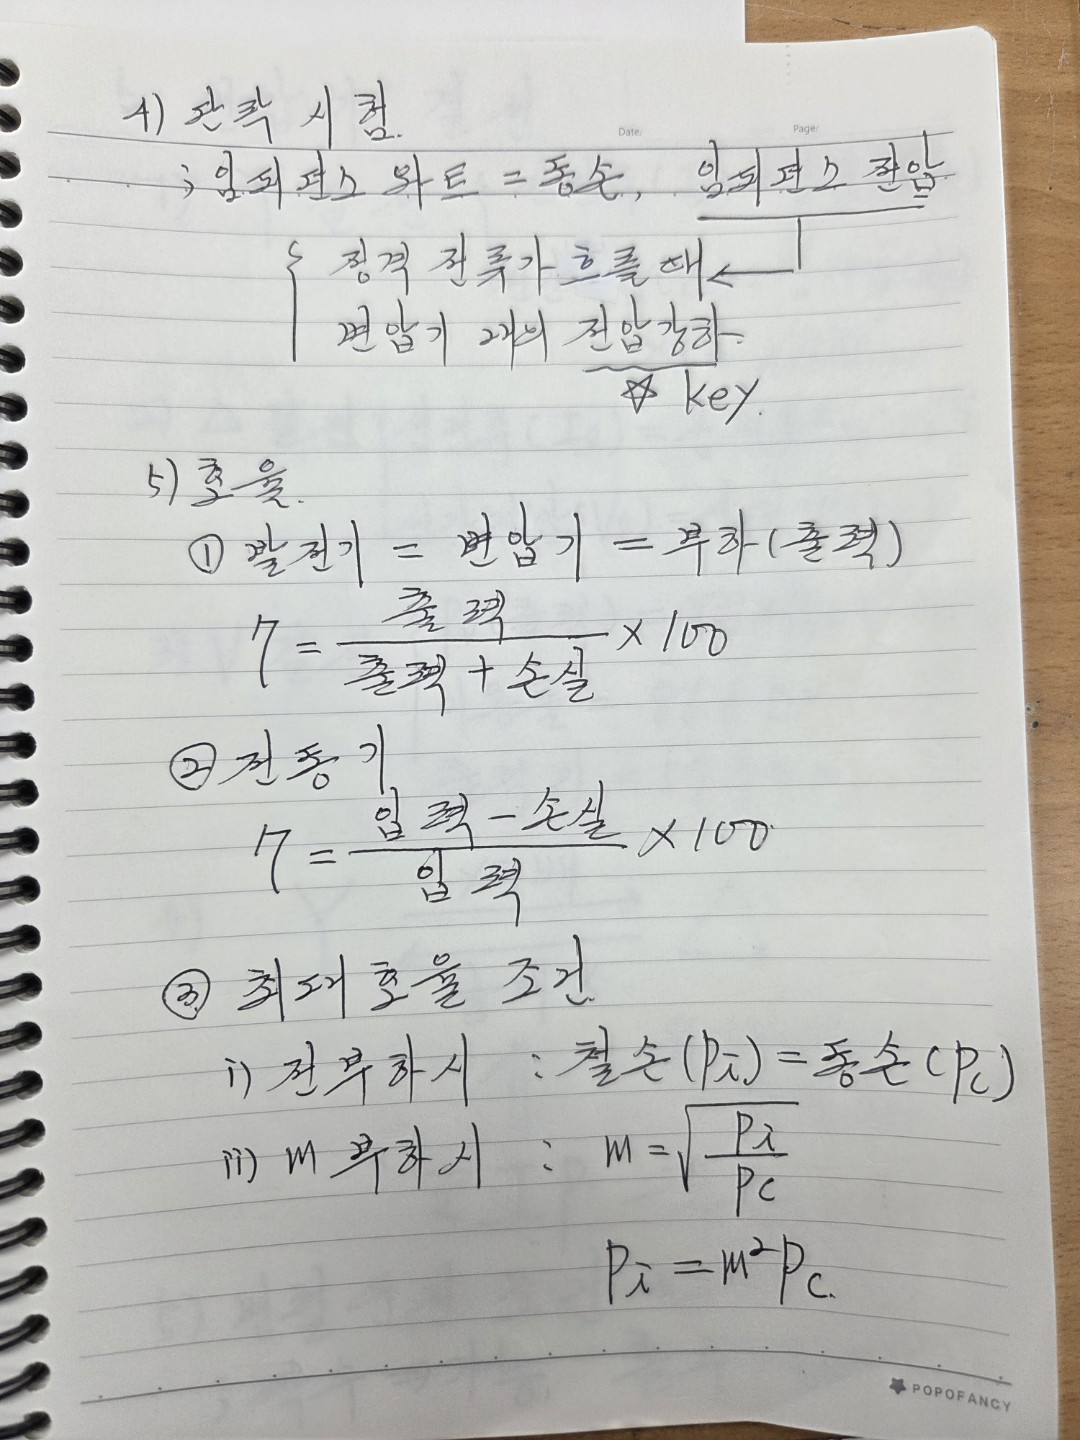 4) 단락 시험.
Date/ Page/
; 임피던스 와트 = 동손, 임피던스 전압
정격 전류가 흐를 때 ←
변압기 내의 전압강하.
☆ key.
5) 효율.
① 발전기 = 변압기 = 부하 (출력)
η = 출력 / 출력 + 손실 × 100
② 전동기
η = 입력 - 손실 / 입력 × 100
③ 최대효율 조건.
i) 전부하시 : 철손(Pi) = 동손(Pc)
ii) m 부하시 : m = √(Pi / Pc)
Pi = m² Pc.
POPOFANCY